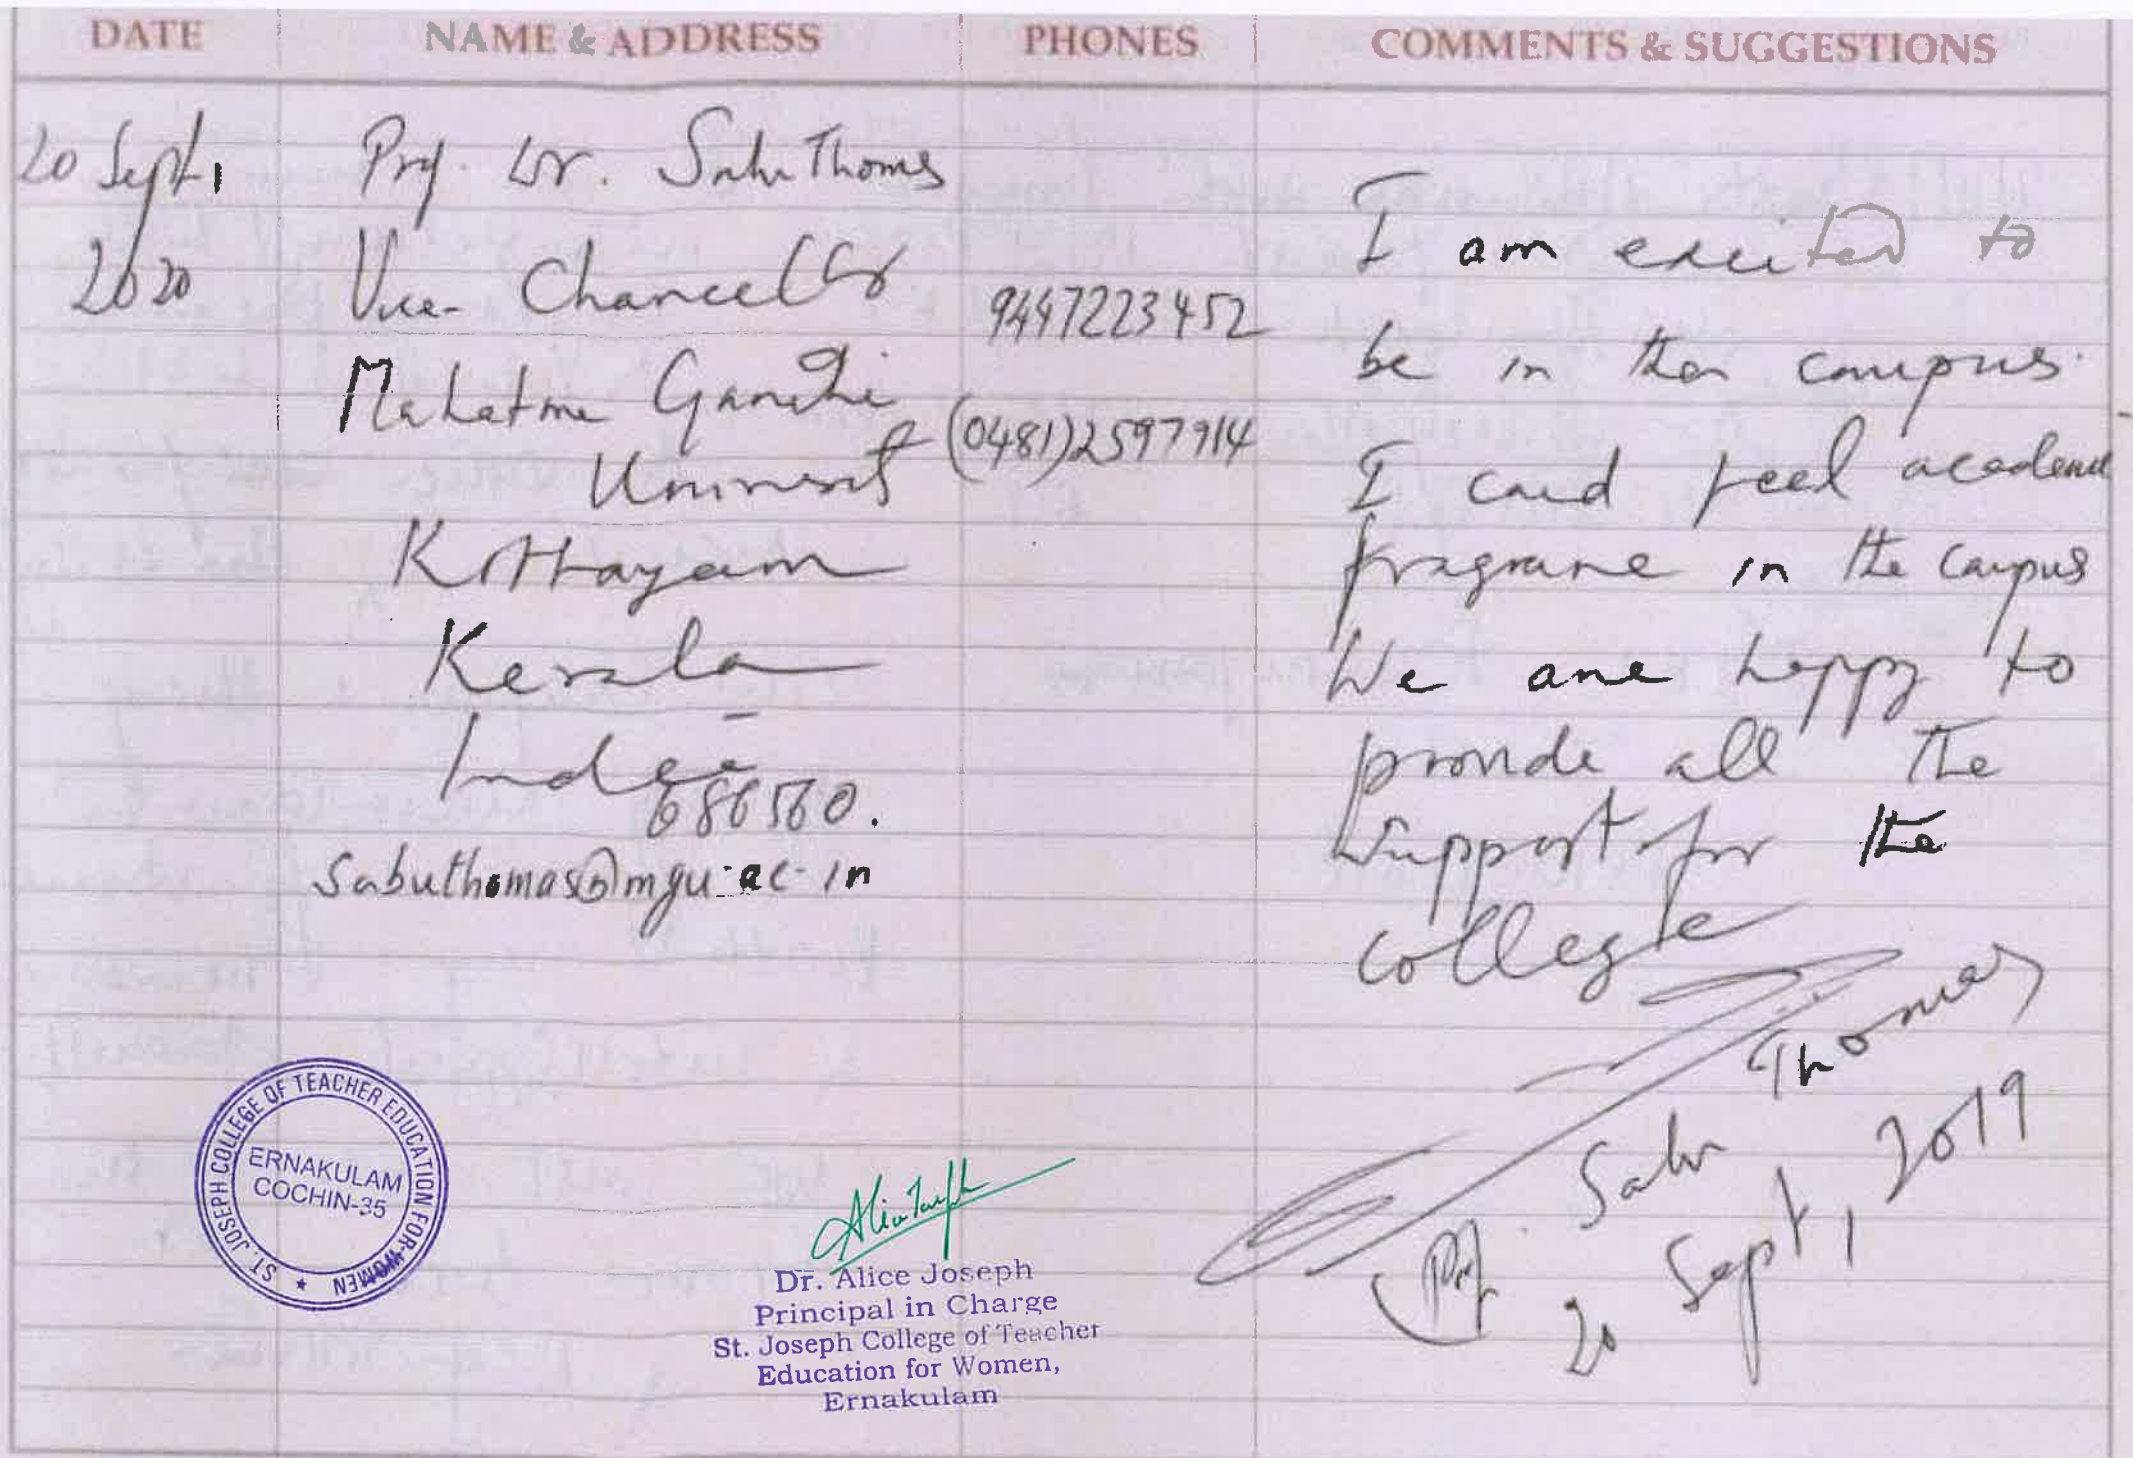 DATE NAME & ADDRESS PHONES COMMENTS & SUGGESTIONS
20 Sept, 2020
Prof. Dr. Sabu Thomas
Vice-Chancellor
Mahatma Gandhi
University
Kottayam
Kerala
India
686560.
sabuthomas@mgu.ac.in
9447223452
(0481)2597914
I am excited to
be in the campus.
I could feel academic
fragrance in the campus
We are happy to
provide all the
support for the
college
Prof. Sabu Thomas
20 Sept, 2019
ST. JOSEPH COLLEGE OF TEACHER EDUCATION FOR WOMEN
ERNAKULAM
COCHIN-35
Dr. Alice Joseph
Principal in Charge
St. Joseph College of Teacher
Education for Women,
Ernakulam